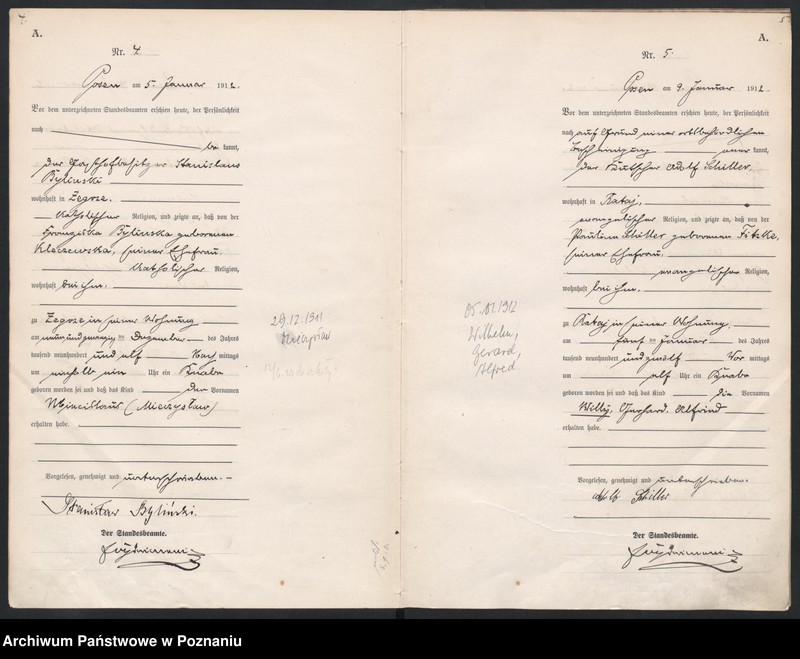 A.
Nr. 4
Posen am 5. Januar 1912.
Vor dem unterzeichneten Standesbeamten erschien heute, der Persönlichkeit
nach
be kannt,
der Gasthofbesitzer Stanislaus
Bylinski
wohnhaft in Zegrze.
katholischer Religion, und zeigte an, daß von der
Franziska Bylinska geborenen
seiner Ehefrau,
katholischer Religion,
wohnhaft bei ihm.
zu Zegrze in seiner Wohnung
am neunundzwanzigsten Dezember des Jahres
tausend neunhundert und elf Nachmittags
um Uhr ein Knabe
geboren worden sei und daß das Kind den Vornamen
(Mieczysław)
erhalten habe.
Vorgelesen, genehmigt und unterschrieben.
Stanisław Byliński.
Der Standesbeamte.
29.12.1911
Mieczysław
5
A.
Nr. 5
Posen am 9. Januar 1912.
Vor dem unterzeichneten Standesbeamten erschien heute, der Persönlichkeit
nach auf Grund einer ortsbehördlichen
Bescheinigung aner kannt,
der Kutscher Adolf Schiller,
wohnhaft in Rataj,
evangelischer Religion, und zeigte an, daß von der
Pauline Schiller geborenen Fitzke,
seiner Ehefrau,
evangelischer Religion,
wohnhaft bei ihm.
zu Rataj in seiner Wohnung,
am fünften Januar des Jahres
tausend neunhundert und zwölf Vor mittags
um elf Uhr ein Knabe
geboren worden sei und daß das Kind die Vornamen
Willy, Gerhard, Alfried
erhalten habe.
Vorgelesen, genehmigt und unterschrieben.
Adolf Schiller
Der Standesbeamte.
05.01.1912
Wilhelm,
Gerard,
Alfred
Archiwum Państwowe w Poznaniu